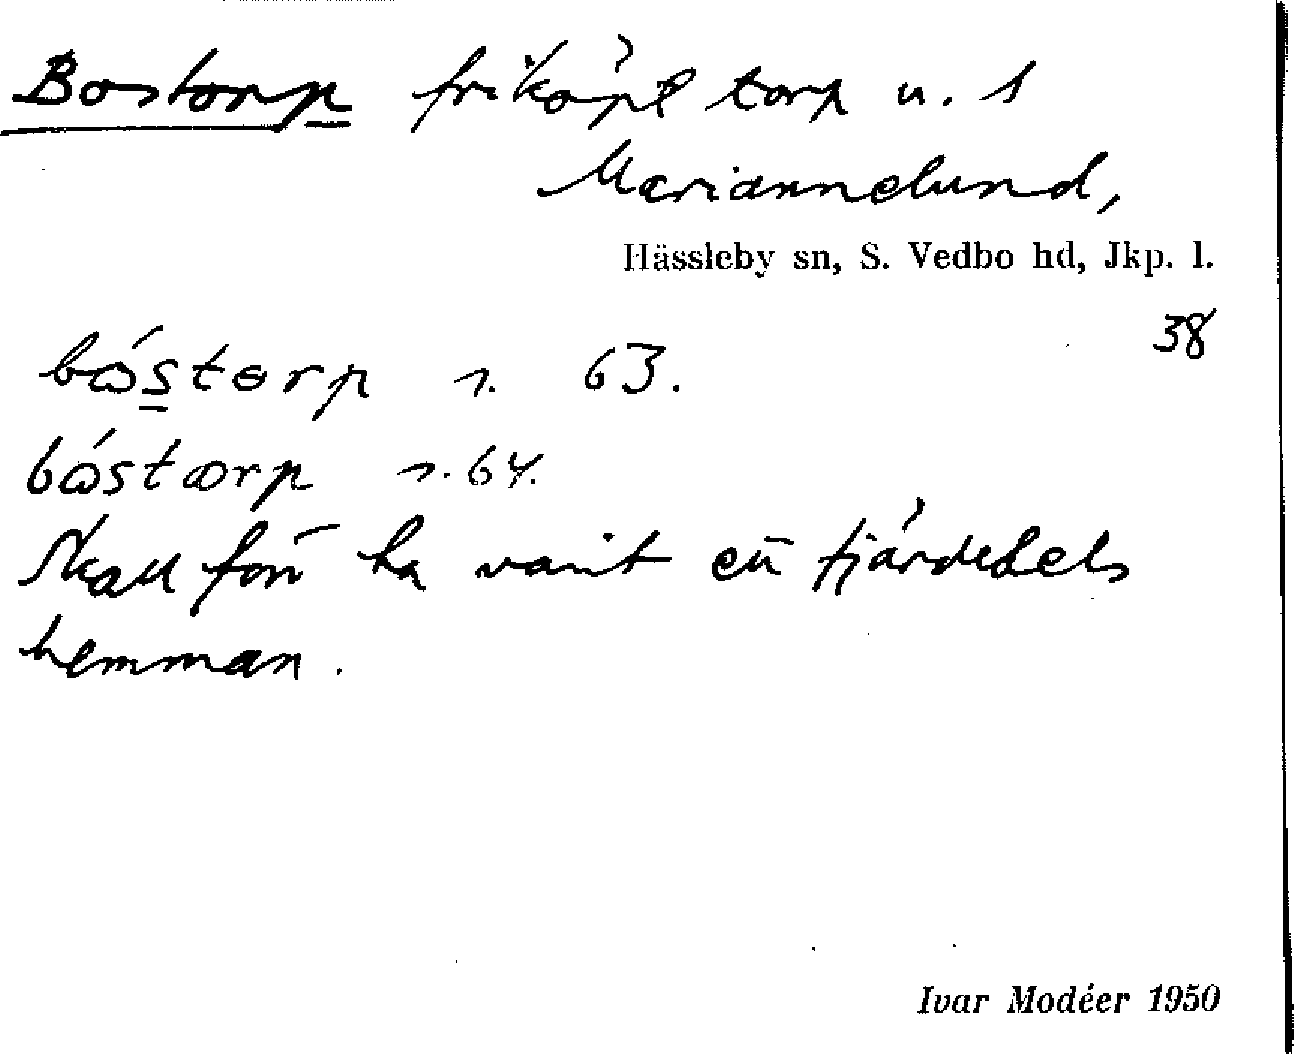 Bostorp friköpt torp u. 1
Mariannelund,
Hässleby sn, S. Vedbo hd, Jkp. l.
38
bǿstɵrp s. 63.
bǿstærp s. 64.
Skall förr ha varit ett fjärdedels
hemman.
Ivar Modéer 1950